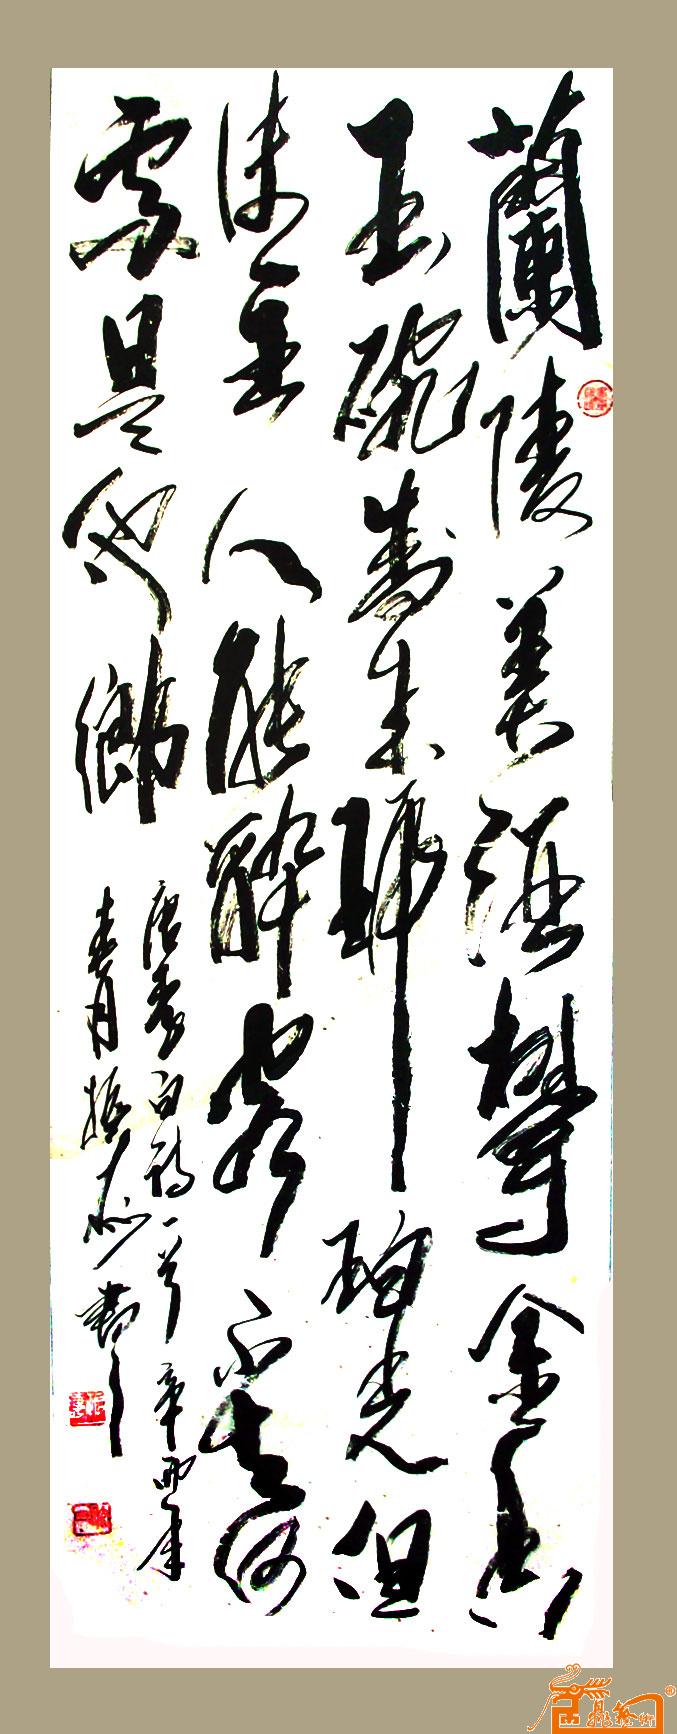 蘭陵美酒鬱金香
玉碗盛來琥珀光但
使主人能醉客不知何
處是他鄉
唐李白詩一首辛卯年
春月振書